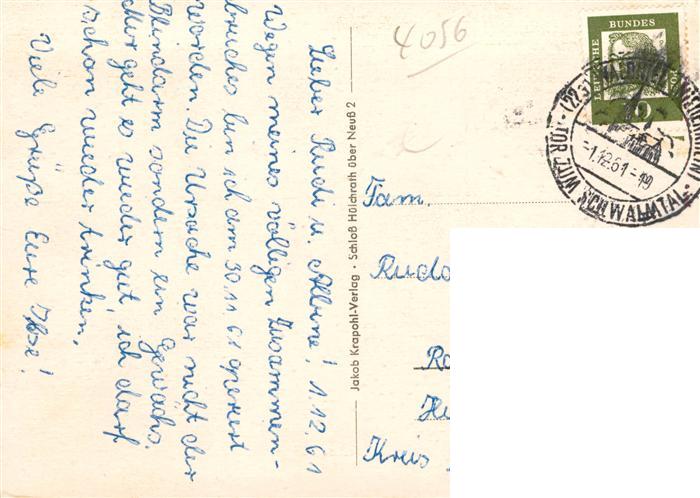 Lieber Rudi u. Albine! 1.12.61
Wegen meines völligen Zusammen-
bruches bin ich am 30.11.61 operiert
worden. Die Ursache war nicht der
Blindarm sondern ein Gewächs.
Mir geht es wieder gut, ich darf
schon wieder trinken.
Viele Grüße Eure Ilse!
Jakob Krapohl-Verlag · Schloß Hülchrath über Neuß 2
4056
DEUTSCHE
BUNDES
POST
-1.12.61-19
SCHWALMTAL
Fam.
Rudo
Kreis